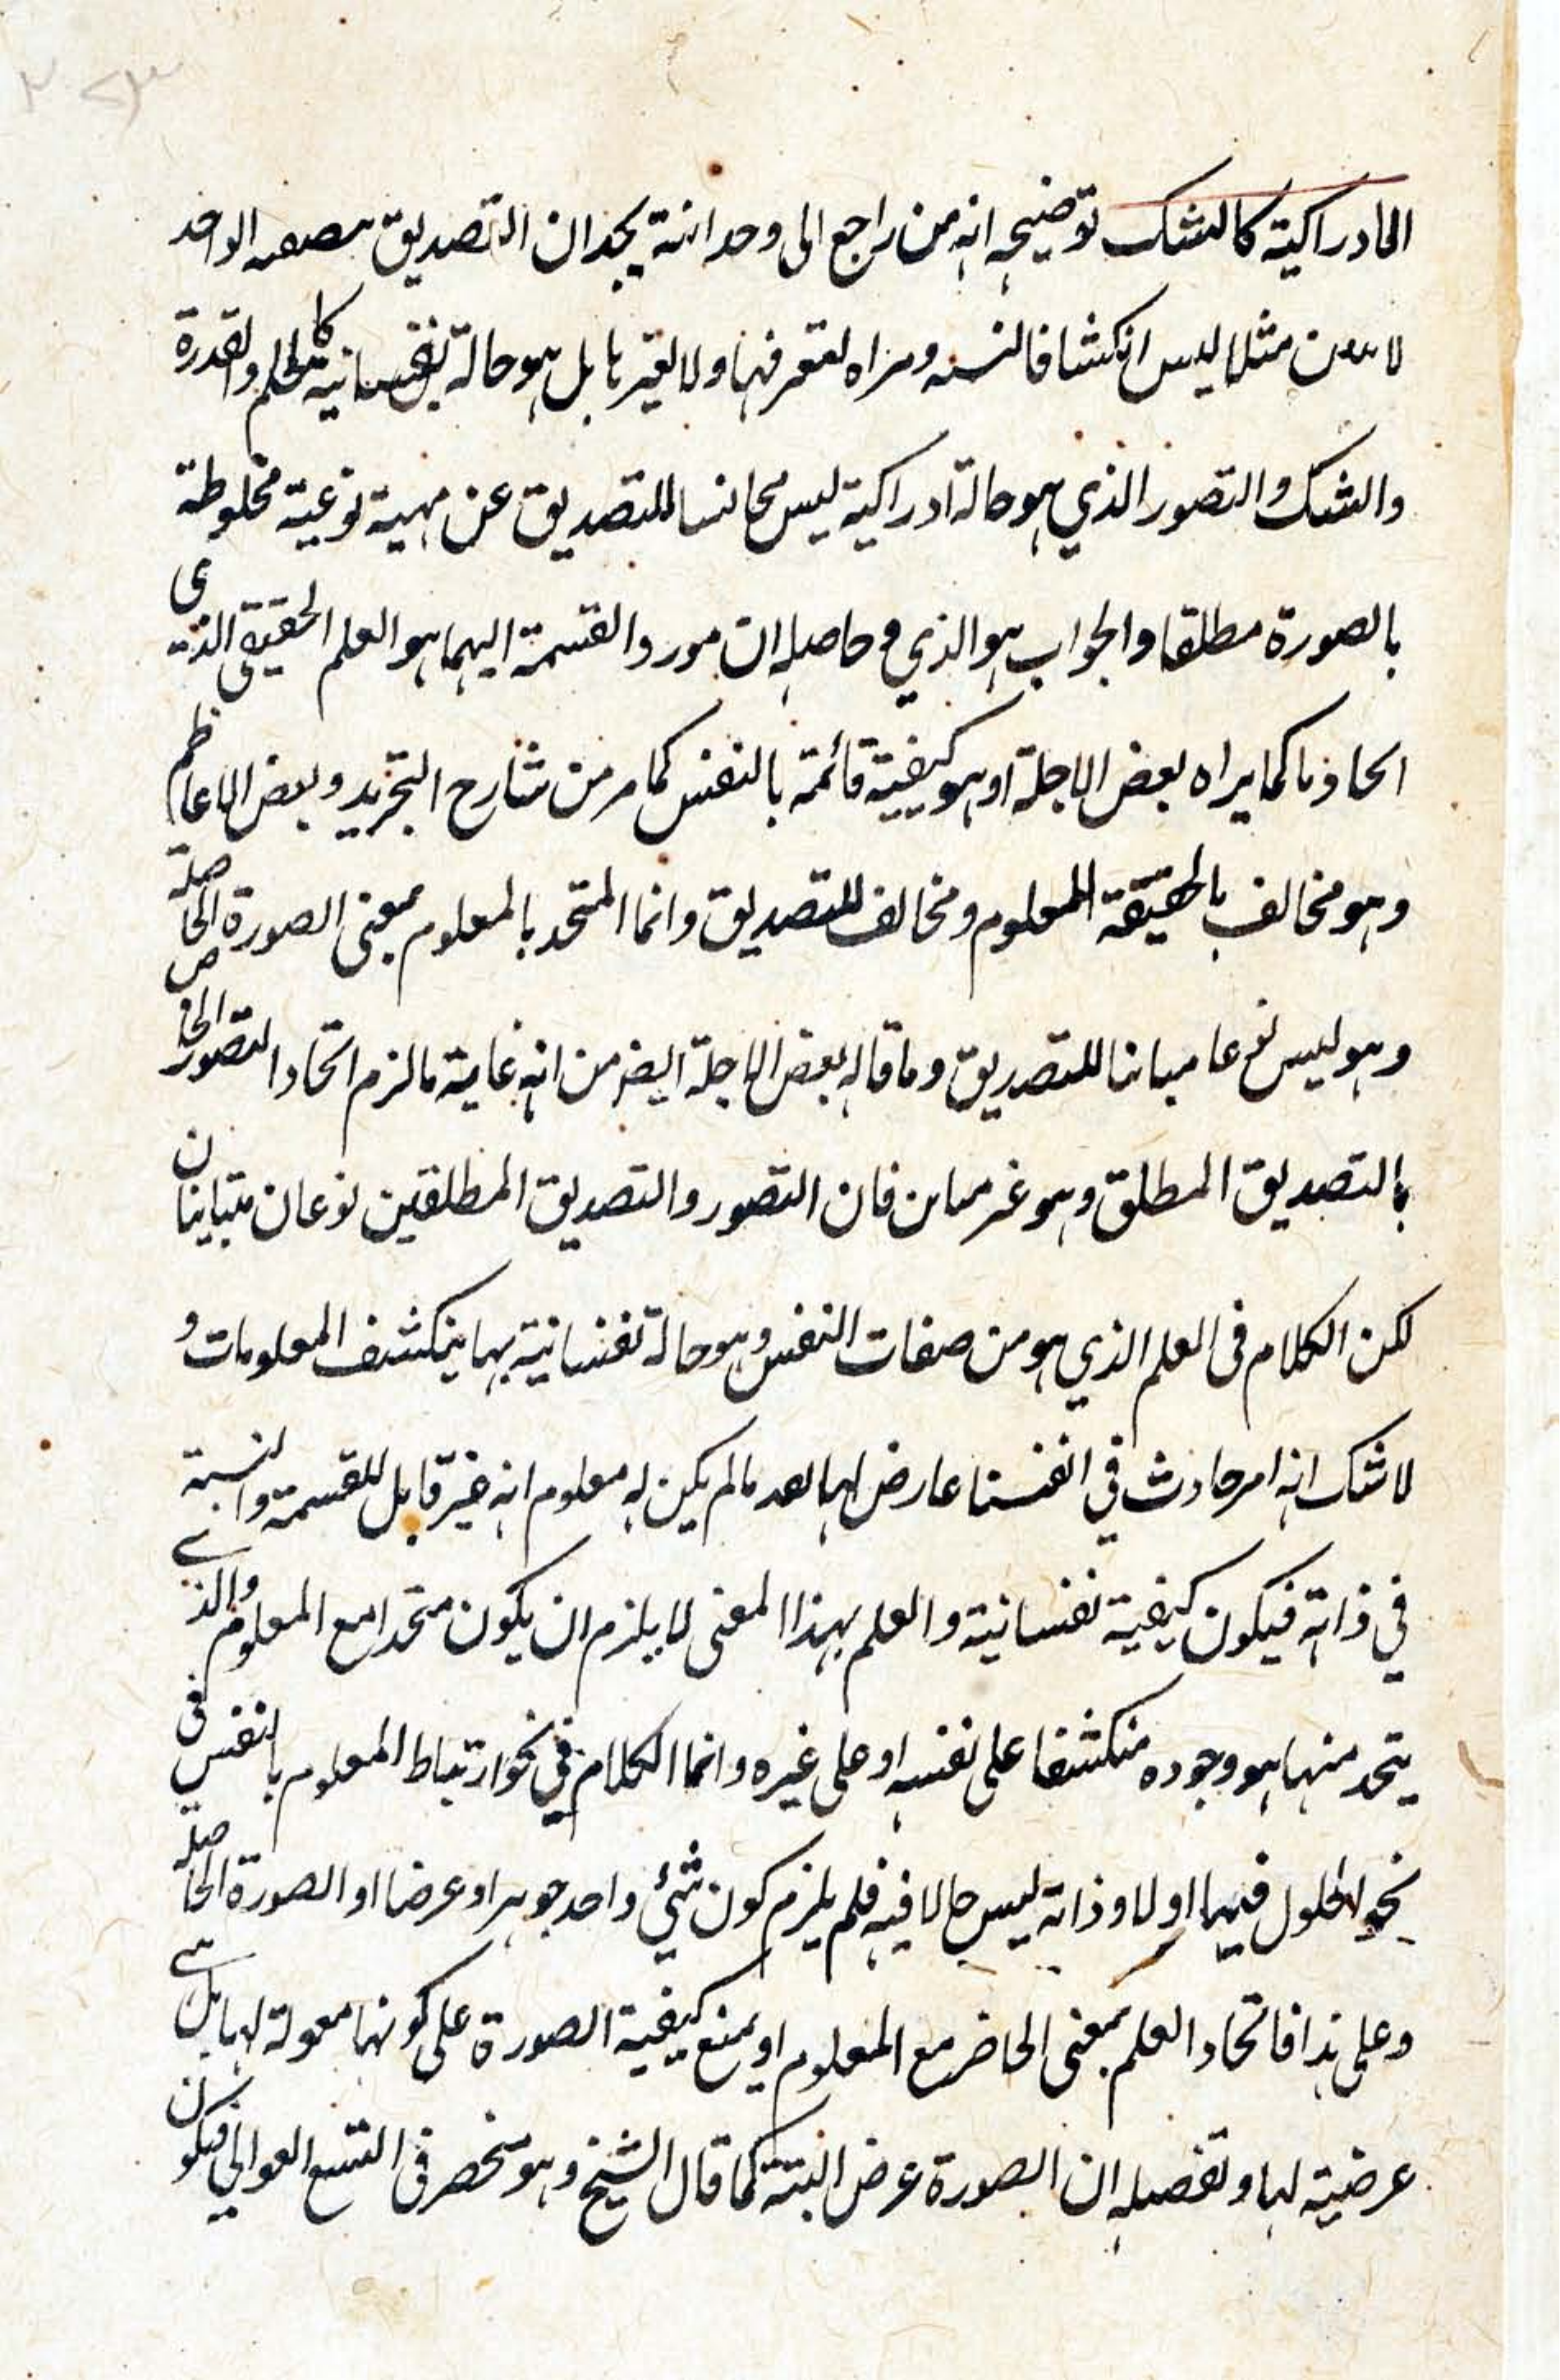 الادراكية كالشك توضيحه انه من راجع الى وحدانية يجد ان التصديق الواحد
مثلا ليس انكشافا ولا بل هو حالة نفسانية كالحلم والقدرة
والشك والتصور الذي هو حالة ادراكية ليس مجانسا للتصديق عن مهية نوعية مخلوطة
بالصورة مطلقا والجواب هو الذي وحاصله ان مورد القسمة اليهما هو العلم الحقيقى الذى
كما يراه بعض الاجلة او هو كيفية قائمة بالنفس كما مر من شارح التجريد وبعض الاعاظم
وهو مخالف بالحقيقة للمعلوم ومخالف للتصديق وانما المتحد بالمعلوم بمعنى الصورة الحاصلة
وهو ليس نوعا مباينا للتصديق وما قاله بعض الاجلة ايضا من انه غاية ما لزم اتحاد التصور الخاص
بالتصديق المطلق وهو غير مباين فان التصور والتصديق المطلقين نوعان متباينان
لكن الكلام فى العلم الذي هو من صفات النفس وهو حالة نفسانية بها ينكشف المعلومات و
لا شك انه امر حادث في انفسنا عارض لها بعد ما لم يكن له معلوم انه غير قابل للقسمة والنسبة
في ذاته فيكون كيفية نفسانية والعلم بهذا المعنى لا يلزم ان يكون متحدا مع المعلوم والذي
يتحد منهما هو وجوده منكشفا على نفسه او على غيره وانما الكلام في نحو ارتباط المعلوم بالنفس فى
نحو الحلول فيها اولا وذاته ليس حالا فيه فلم يلزم كون شئي واحد جوهرا وعرضا او الصورة الحاصلة
وعلى هذا فاتحاد العلم بمعنى الحاضر مع المعلوم او يمنع كيفية الصورة على كونها مقولة لها بل هي
عرضية لها وتفصيله ان الصورة عرض البتة كما قال الشيخ وهو منحصر فى التسع العوالي فيكون